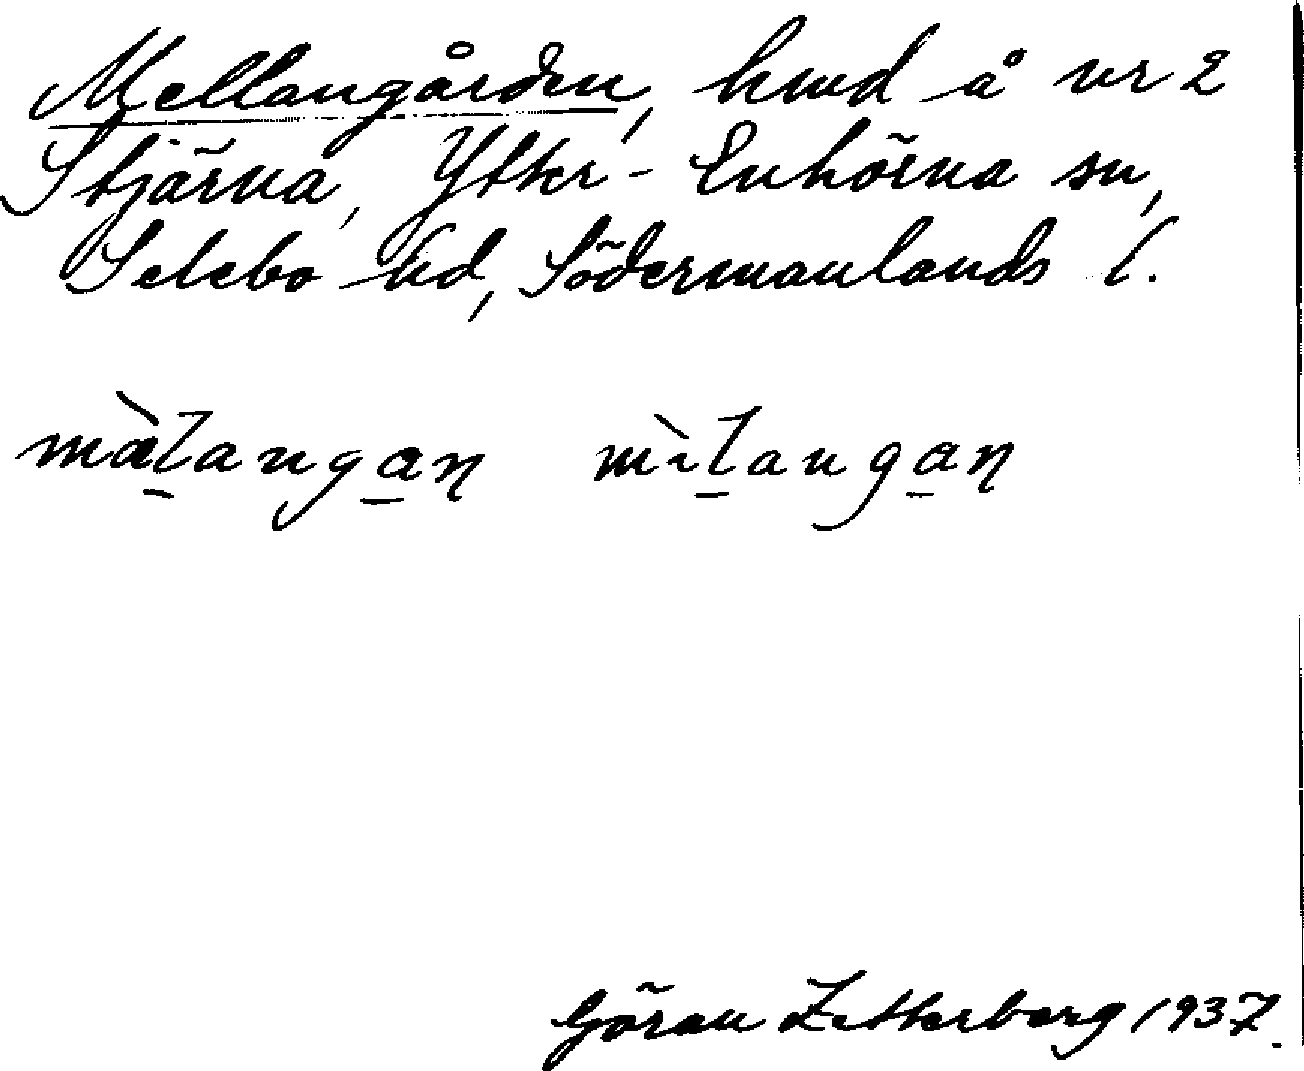 Mellangården, hmd å nr 2
Stjärna, Ytter-Enhörna sn,
Selebo hd, Södermanlands l.
mæ̀langan̡ mìlangan̡
Göran Zetterberg 1937.